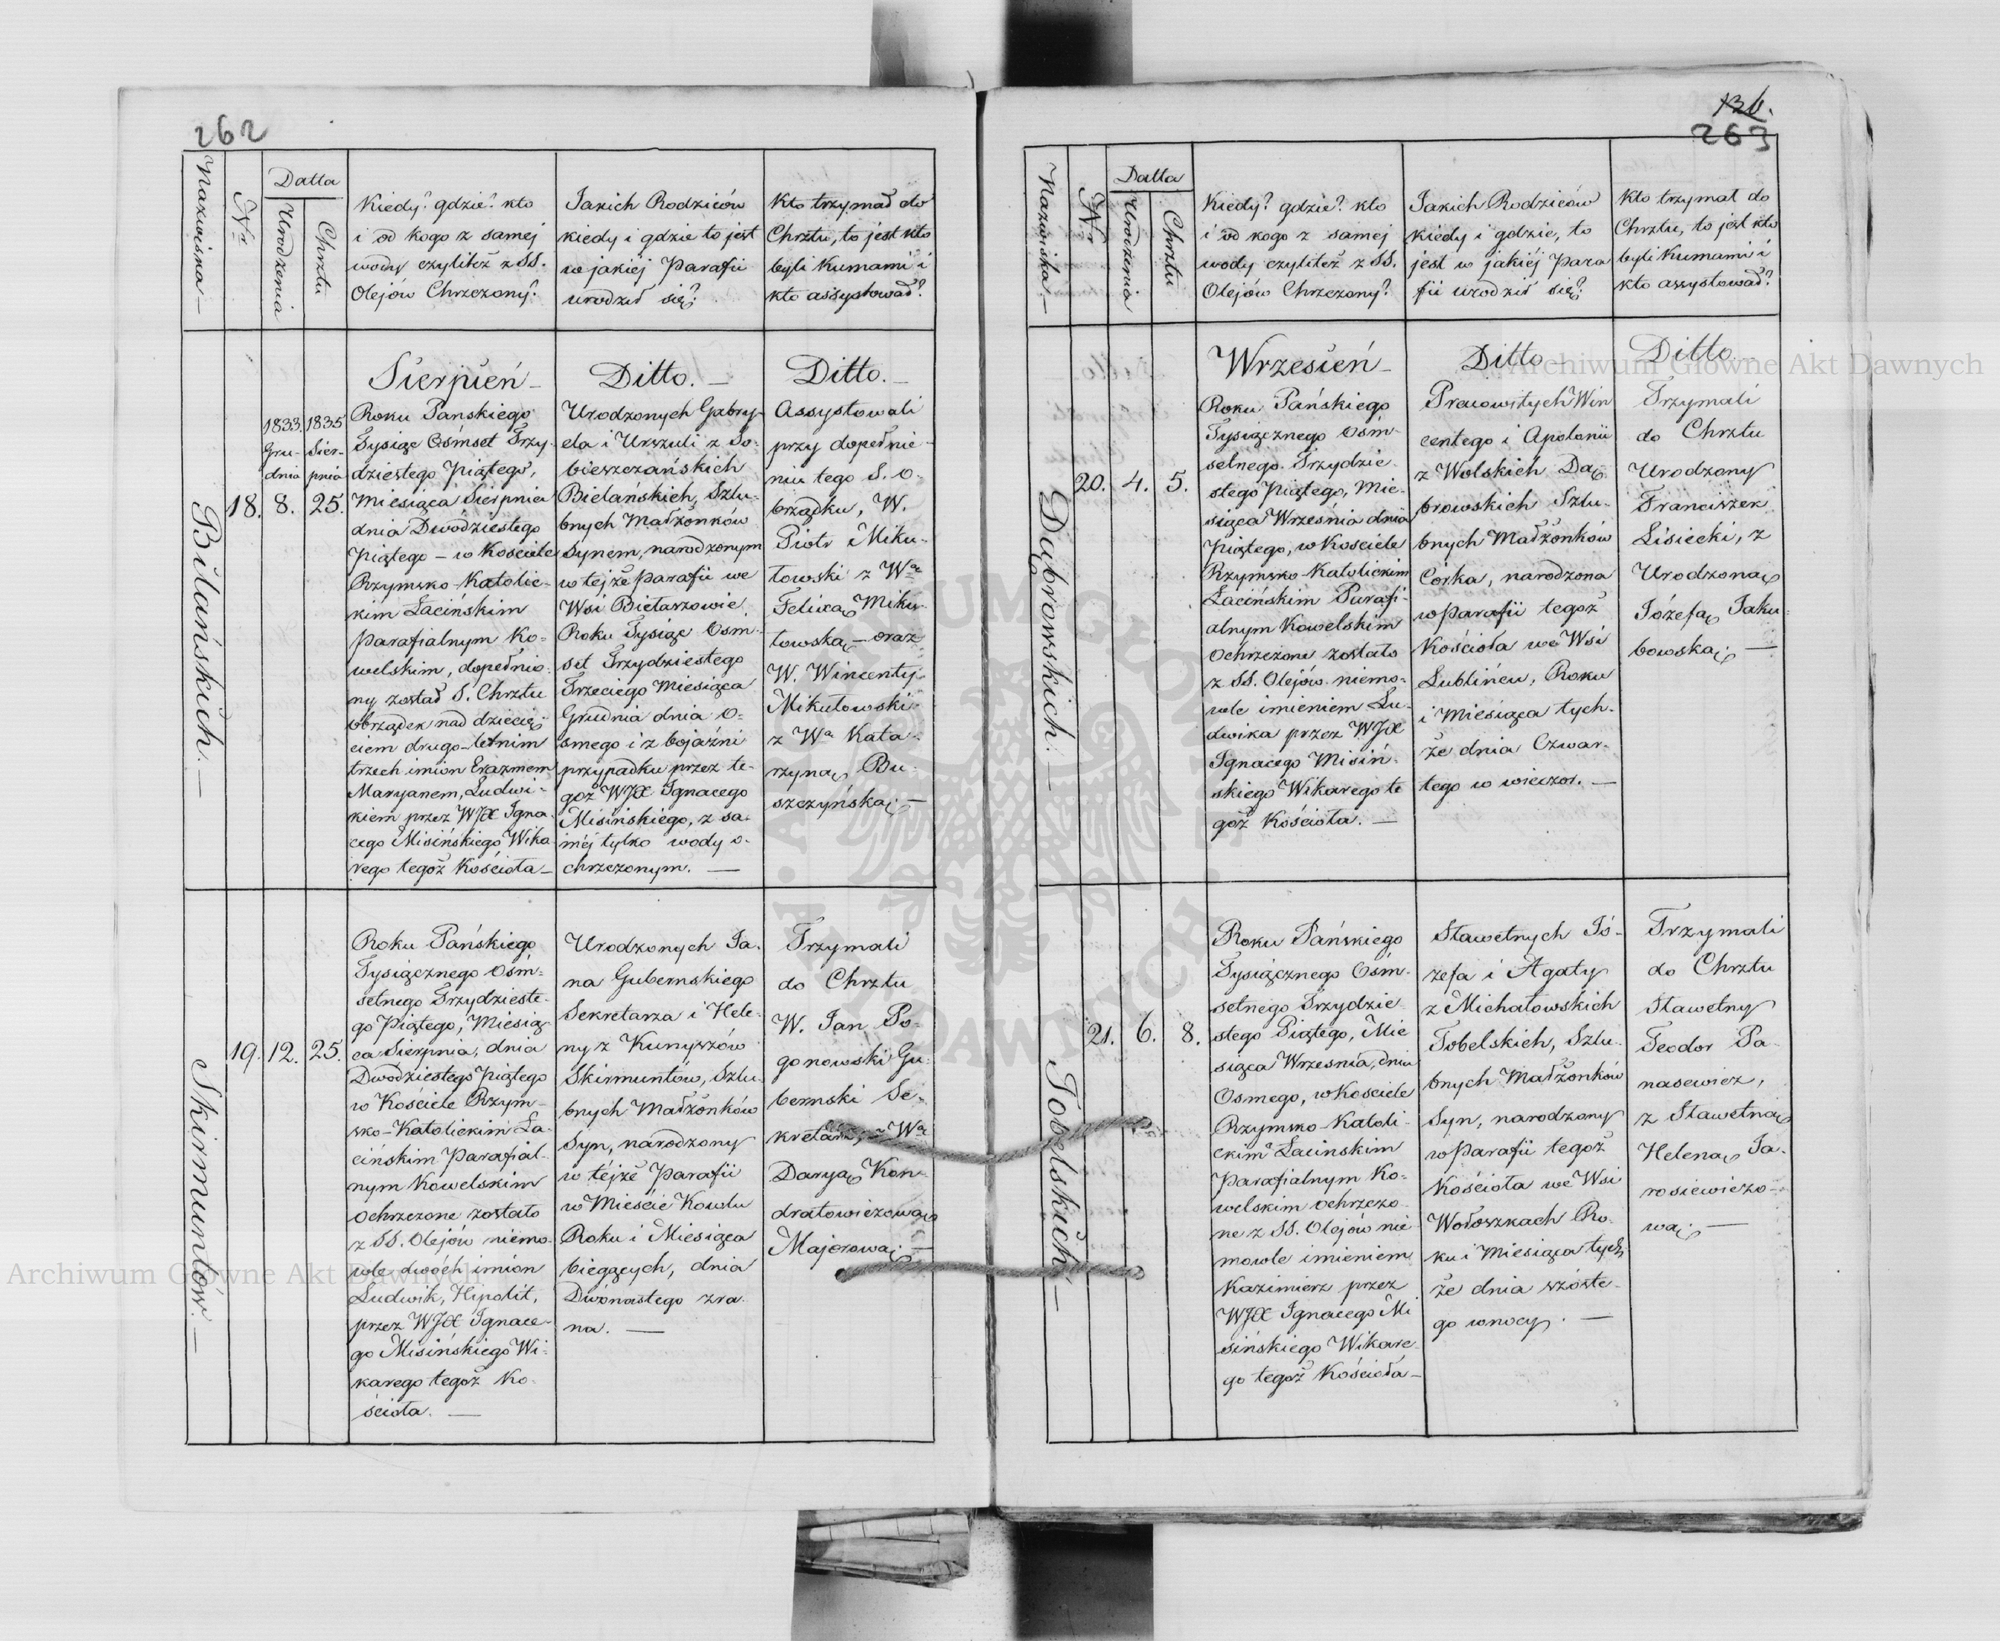 262
Nazwiska —
Nr
Datta
Urodzenia
Chrztu
Kiedy? gdzie? kto
i od kogo z samej
wody czyliteż z SS.
Olejów Chrzczony?
Jakich Rodziców
kiedy i gdzie to jest
w jakiéj Parafii
urodził się?
Kto trzymał do
Chrztu, to jest kto
byli Kumami i
kto assystował?
Bilańskich. —
18.
1833.
Gru-
dnia
8.
1835
Sier-
pnia
25.
Sierpień —
Roku Pańskiego
Tysiąc Ośmset Trzy-
dziestego Piątego,
Miesiąca Sierpnia
dnia Dwódziestego
Piątego — w Kościele
Rzymsko-Katolic-
kim Łacińskim
Parafialnym Ko-
welskim, dopełnio-
ny został S. Chrztu
obrządek nad dziecię-
ciem drugo-letnim
trzech imion Erazmem
Maryanem, Ludwi-
kiem przez WJX Igna-
cego Misińskiego Wika-
rego tegoż Kościoła —
Ditto. —
Urodzonych Gabry-
ela i Urszuli z So-
bieszczańskich
Bielańskich, Szlu-
bnych Małżonków
Synem, narodzonym
w tejże Parafii we
Wsi Bielaszowie
Roku Tysiąc Osm-
set Trzydziestego
Trzeciego Miesiąca
Grudnia dnia O-
smego i z bojaźni
przypadku przez te-
goż WJX Ignacego
Misińskiego, z sa-
méj tylko wody o-
chrzczonym. —
Ditto. —
Assystowali
przy dopełnie-
niu tego S. O-
brządku, W.
Piotr Miku-
łowski z Wą
Felixą Miku-
łowską — oraz
W. Wincenty
Mikułowski
z Wą Kata-
rzyną Bu-
szczyńską. —
Skirmuntów. —
19.
12.
25.
Roku Pańskiego
Tysiącznego Ośm-
setnego Trzydzieste-
go Piątego, Miesią-
ca Sierpnia, dnia
Dwódziestego Piątego
w Kościele Rzym-
sko-Katolickim Ła-
cińskim Parafial-
nym Kowelskim
Ochrzczone zostało
z SS. Olejów niemo-
wle dwóch imion
Ludwik, Hipolit,
przez WJX Ignace-
go Misińskiego Wi-
karego tegoż Ko-
ścioła. —
Urodzonych Ja-
na Gubernskiego
Sekretarza i Hele-
ny z Kunyszów
Skirmuntów, Szlu
bnych Małżonków
Syn, narodzony
w téjże Parafii
w Mieście Kowlu
Roku i Miesiąca
bieżących, dnia
Dwónastego zra-
na. —
Trzymali
do Chrztu
W. Jan Po-
gonowski Gu-
bernski Se-
kretarz, z Wą
Daryą Kon-
dratowiczową
Majorową. —
136.
263
Nazwiska —
Nr
Datta
Urodzenia
Chrztu
Kiedy? gdzie? kto
i od kogo z samej
wody czyliteż z SS.
Olejów Chrzczony?
Jakich Rodziców
kiedy i gdzie, to
jest w jakiéj Para
fii urodził się?
Kto trzymał do
Chrztu, to jest kto
byli Kumami i
kto assystował?
Dąbrowskich. —
20.
4.
5.
Wrzesień —
Roku Pańskiego
Tysiącznego Ośm-
setnego Trzydzie-
stego Piątego, Mie-
siąca Września dnia
Piątego, w Kościele
Rzymsko-Katolickim
Łacińskim Parafi-
alnym Kowelskim
Ochrzczone zostało
z SS. Olejów niemo-
wle imieniem Lu-
dwika przez WJX
Ignacego Misiń-
skiego Wikarego te
goż Kościoła. —
Ditto —
Pracowitych Win
centego i Apolonii
z Wolskich Dą-
browskich Szlu-
bnych Małżonków
Córka, narodzona
w Parafii tegoż
Kościoła we Wsi
Lublińcu, Roku
i Miesiąca tych-
że dnia Czwar-
tego w wieczór. —
Ditto. —
Trzymali
do Chrztu
Urodzony
Franciszek
Lisiecki, z
Urodzoną
Józefą Jaku-
bowską. —
Tobelskich. —
21.
6.
8.
Roku Pańskiego
Tysiącznego Ośm-
setnego Trzydzie-
stego Piątego, Mie
siąca Września, dnia
Osmego, w Kościele
Rzymsko Katoli-
ckim Łacinskim
Parafialnym Ko-
welskim ochrzczo-
ne z SS. Olejów nie
mowle imieniem
Kazimierz przez
WJX Ignacego Mi
sińskiego Wikare-
go tegoż Kościoła —
Sławetnych Jó-
zefa i Agaty
z Michałowskich
Tobelskich, Szlu-
bnych Małżonków
Syn, narodzony
w Parafii tegoż
Kościoła we Wsi
Wołoszkach Ro-
ku i Miesiąca tych
że dnia szóste-
go w nocy. —
Trzymali
do Chrztu
Sławetny
Teodor Pa-
nasewicz,
z Sławetną
Heleną Ja-
rosiewiczo-
wą. —
Archiwum Główne Akt Dawnych
Archiwum Główne Akt Dawnych
ARCHIWUM GŁÓWNE AKT DAWNYCH